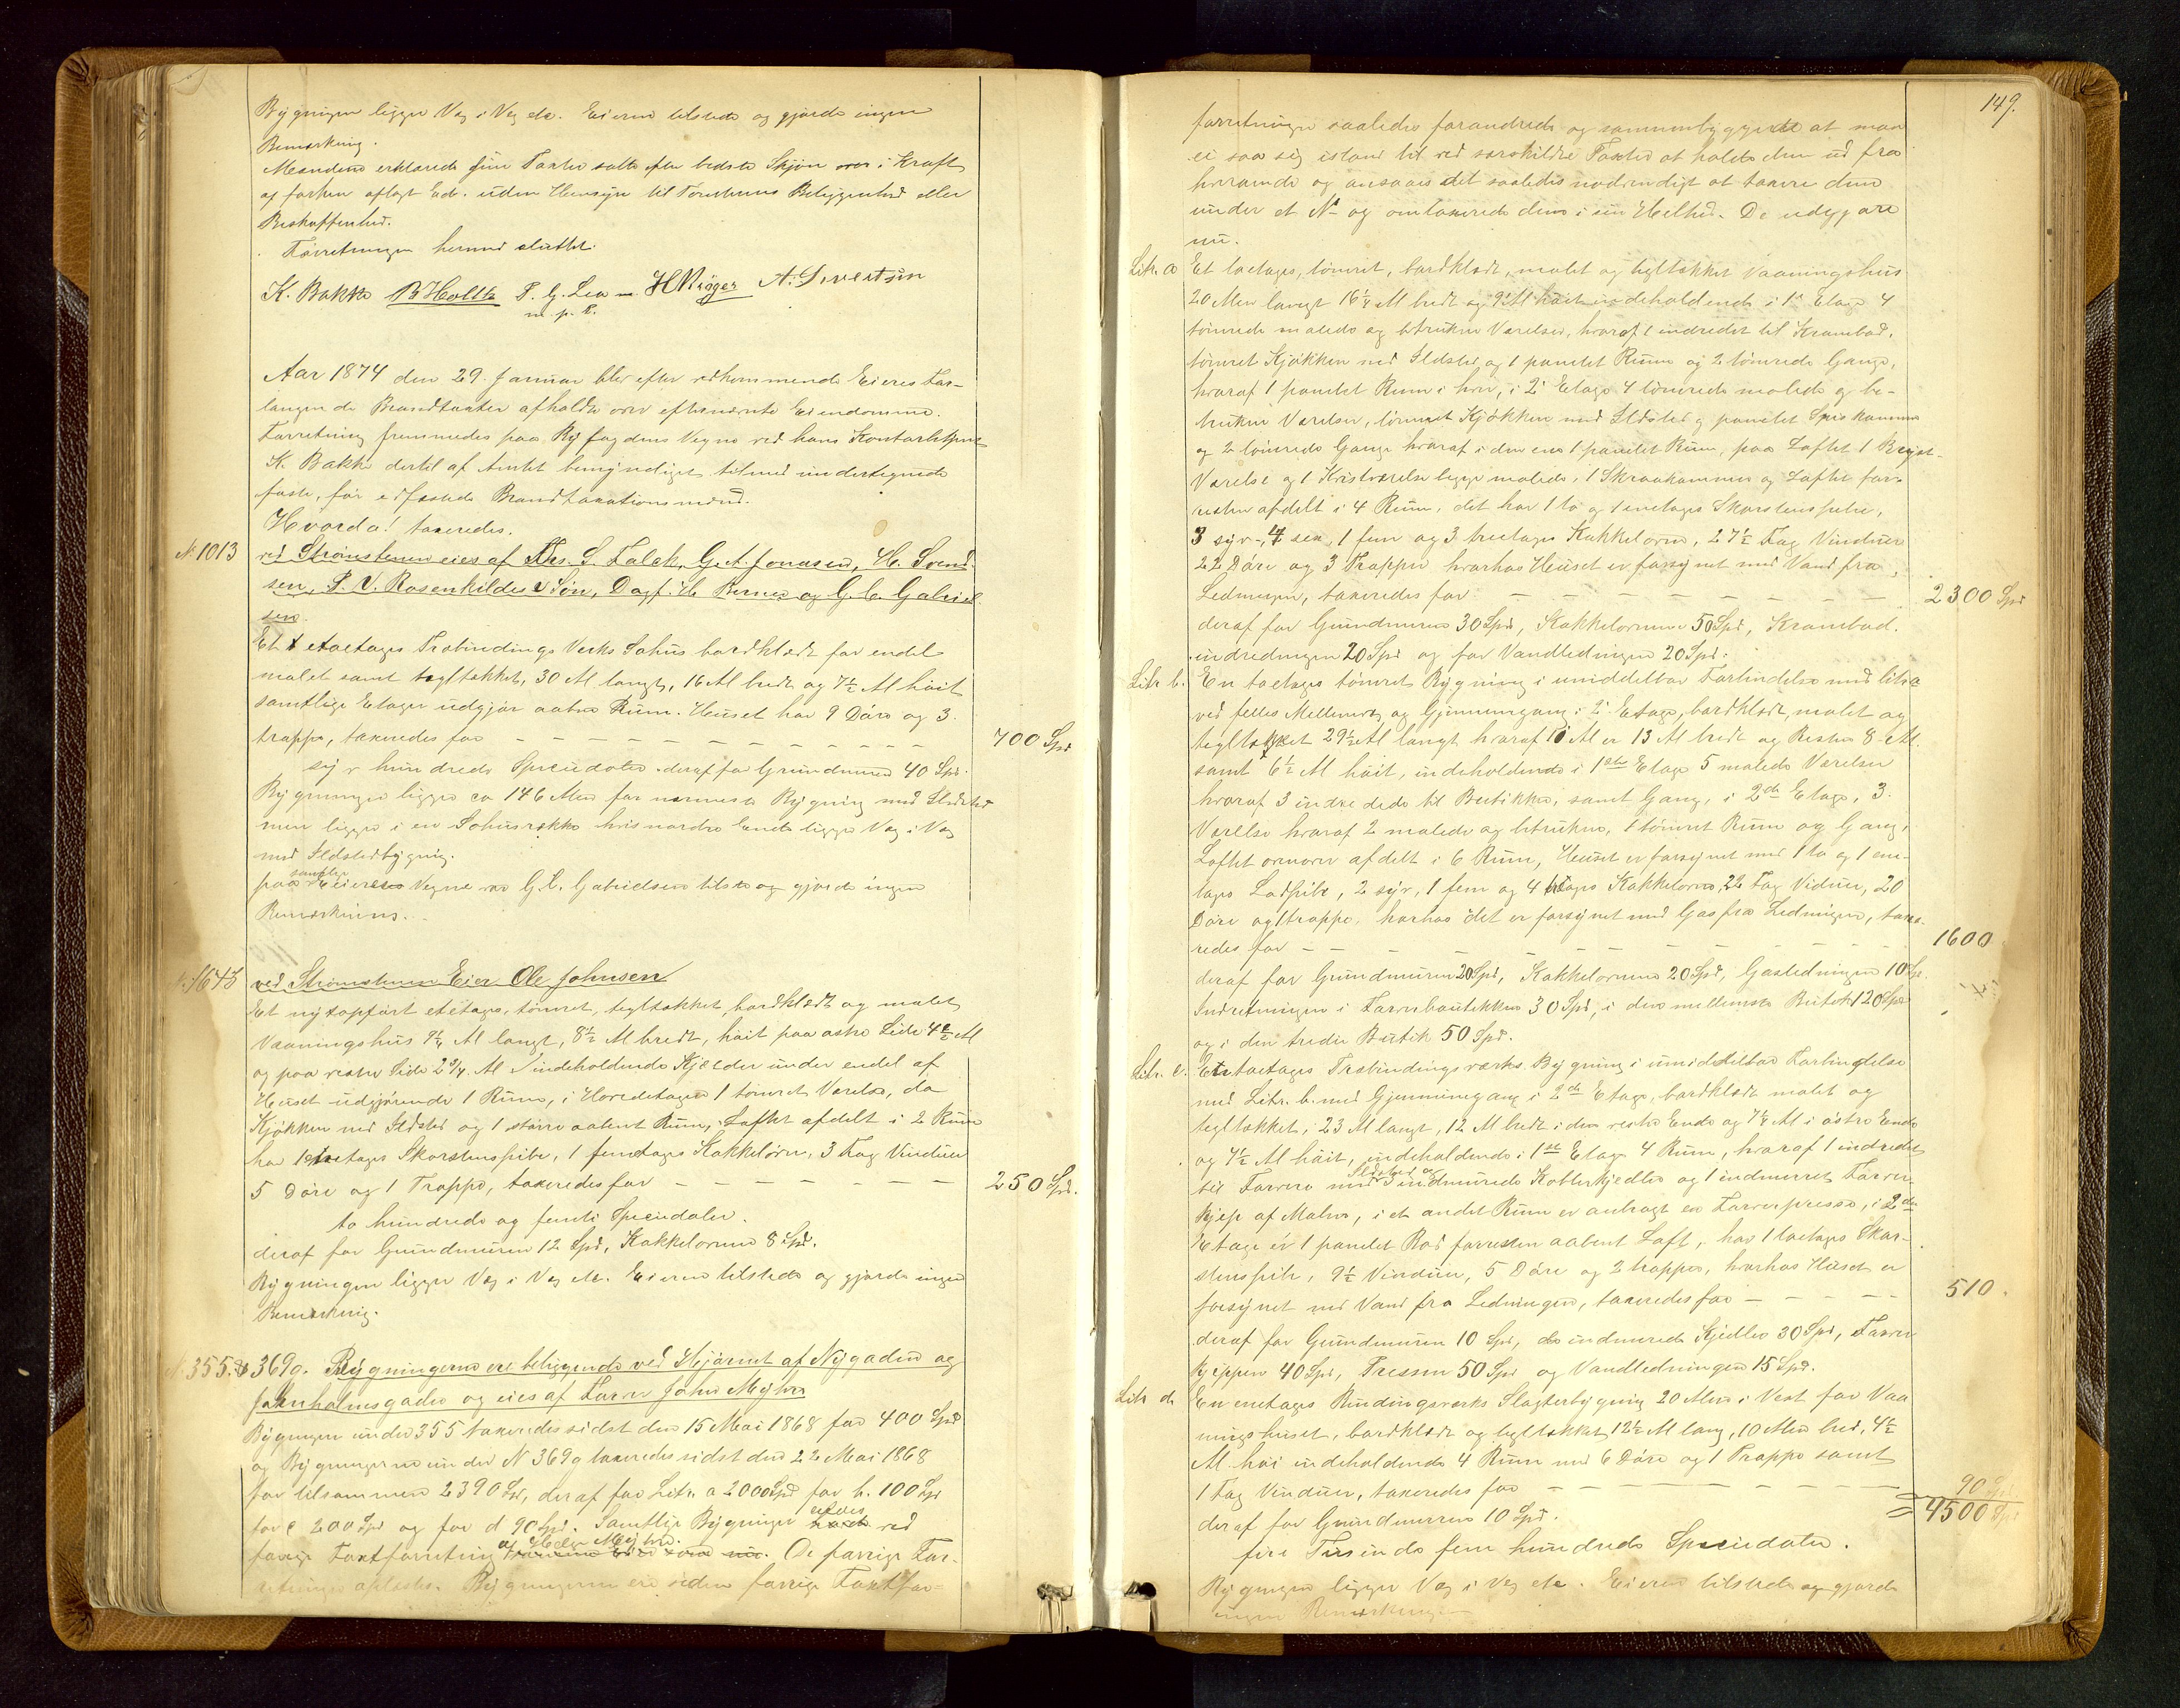 Bygningen ligger Væg i Væg etc. Eieren tilstede og gjorde ingen
Bemærkning.
Mændene erklærede sine Taxter satte efter bedste Skjøn over i Kraft
af forhen aflagt Ed. uden Hensyn til Tomternes Beliggenhed eller
Beskaffenhed.
Forretningen hermed sluttet.
K. Bakke B Holth P. G. Lea H Risger A. Sivertsen
m. p. P.
Aar 1874 den 29. Januar blev efter vedkommende Eieres For-
langende Brandtaxter afholdte over efternævnte Eiendomme.
Forretning fremmedes paa Byfogdens Vegne ved hans Kontorbetjent
K. Bakke dertil af Amtet bemyndiget tilmed undertegnede
faste, før edfæstede Brandtaxationsmænd.
Hvorda! taxeredes.
N. 1013
ved Strømstenen eies af Ths. S. Falck, G. A. Jonasen, H. Svend-
sen, P. V. Rosenkildes Søn, Dagf. H. Berner og G. C. Gabriel-
sen.
Et etages Træbindings Værks Søhus bordklædt for endel
malet samt tegltækket, 30 Al langt, 16 Al bredt og 7½ Al høit
samtlige Etager udgjør aabne Rum. Huset har 9 Døre og 3
trapper, taxeredes for — — — — — — — — — — — 700 Spd
syv hundrede Speciedaler. deraf for Grundmuren 40 Spd.
Bygningen ligger ca 146 Alen fra nærmeste Bygning med Ildsted
men ligger i en Søhusrække hvis nordre Ende ligger Væg i Væg
med Ildstedbygnig.
paa samtlige Eieres Vegne var G. C. Gabrielsen tilstede og gjorde ingen
Bemærknins.
N. 1643
ved Strømstenen Eier Ole Johnsen
Et nytopført etetages, tømret, tegltækket, bordklædt og malet
Vaaningshus 9¼ Al langt, 8½ Al bredt, høit paa østre Side 4½ Al
og paa vestre Side 2¾ Al indeholdende Kjelder under endel af
Huset udgjørende 1 Rum, i Hovedetagen 1 tømret Værelse, do
Kjøkken med Ildsted og 1 større aabent Rum, Loftet afdelt i 2 Rum
har 1 etages Skorstenspibe, 1 femetages Kakkelovn, 3 Fag Vinduer
5 Døre og 1 Trappe, taxeredes for — — — — — — — 250 Spd.
to hundrede og femti Speciedaler.
deraf for Grundmuren 12 Spd, Kakkelovnen 8 Spd.
Bygningen ligger Væg i Væg etc. Eieren tilstede og gjorde ingen
Bemærknig.
N. 355. & 369g. Bygningerne ere beliggende ved Hjørnet af Nygaden og
Jorenholmsgaden og eies af Farver John Meyhre
Bygningen under 355 taxeredes sidst den 15 Mai 1868 for 400 Spd
og Bygningerne under N 369g taxeredes sidst den 22 Mai 1868
for tilsammen 2390 Spd, deraf for Litr. a 2000 Spd for b. 100 Spd
for c 200 Spd og for d 90 Spd. Samtlige Bygninger eiedes ved
forrige Taxtforretning af Helge Meyhre. De forrige For-
retninger oplæstes. Bygningerne ere siden forrige Taxtfor-
149.
forretninger saaledes forandrede og sammenbyggede at man
ei saa sig istand til ved særskildte Taxter at holde dem ud fra
hverandre og ansaaes det saaledes nødvendigt at taxere dem
under et No og omtaxerede dem i sin Helhed. De udgjøre
nu.
Litr. a Et toetages, tømret, bordklædt, malet og tegltækket Vaaningshus
20 Alen langt 16¼ Al bredt og 9 Al høit indeholdende i 1ste Etage 4
tømrede malede og betrukne Værelser, hvoraf 1 indredet til Krambod.
tømret Kjøkken med Ildsted og 1 panelet Rum og 2 tømrede Gange,
hvoraf 1 panelet Rum i hver, i 2den Etage 4 tømrede malede og be-
trukne Værelser, tømret Kjøkken med Ildsted og panelet Spiskammer
og 2 tømrede Gange hvoraf i den ene 1 panelet Rum, paa Loftet 1
Værelse og 1 Kvistværelse begge malede, 1 Skraakammer og Loftet for-
resten afdelt i 4 Rum, det har 1 to og 1 enetages Skorstenspibe,
3 syv-, 4 sex, 1 fem og 3 treetages Kakkelovne, 27½ Fag Vinduer
22 Døre og 3 Trapper hvorhos Huset er forsynet med Vand fra
Ledningen, taxeredes for — — — — — — — — — 2300 Spd
deraf for Grundmuren 30 Spd, Kakkelovnene 50 Spd, Krambod.
indredningen 20 Spd og for Vandledningen 20 Spd.
Litr b. En toetages tømret Bygning i umiddelbar Forbindelse med litr a
ved fælles Mellemvæg og Gjennemgang i 2den Etage, bordklædt, malet og
tegltækket 29½ Al langt hvoraf 10 Al er 13 Al bredt og Resten 8 Al
samt 6½ Al høit, indeholdende i 1ste Etage 5 malede Værelser
hvoraf 3 indredede til Butikker, samt Gang, i 2den Etage, 3
Værelser hvoraf 2 malede og betrukne, 1 tømret Rum og Gang,
Loftet ovenover afdelt i 6 Rum, Huset er forsynet med 1 to og 1 ene-
tages Ladpibe, 2 syv, 1 fem og 4 etages Kakkelovne, 22 Fag Viduer, 20
Døre og 1 trappe. hvorhos det er forsynet med Gas fra Ledningen, taxe-
redes for — — — — — — — — — 1600
deraf for Grundmuren 20 Spd, Kakkelovnene 20 Spd, Gasledningen 10 Spd.
Indretningen i Farverboutikken 30 Spd, i den mellemste Butik 120 Spd
og i den tredie Butik 50 Spd.
Litr. c. Et toetages Træbindingsværks Bygning i umiddelbar Forbindelse
med Litr. b. med Gjennemgang i 2den Etage, bordklædt malet og
tegltækket, 23 Al langt, 12 Al bredt i den vestre Ende og 7¼ Al i østre Ende
og 7½ Al høit, indeholdende i 1ste Etage 4 Rum, hvoraf 1 indredet
til Farveri med Ildsted og 3 indmurede Kobberkjedler og 1 indmurret Farver-
kjep af Malm, i et andet Rum er anbragt en Farverpresse, i 2den
Etage er 1 panelet Bod forresten aabent Loft, har 1 toetages Skor-
stenspibe, 9½ Vinduer, 5 Døre og 2 trapper, hvorhos Huset er
forsynet med Vand fra Ledningen, taxeredes for — — — — — 510.
deraf for Grundmuren 10 Spd, de indmurede Kjedler 30 Spd, Farver
Kyppen 40 Spd, Pressen 50 Spd og Vandledningen 15 Spd.
Litr d. En enetages Bindingsværks Slagterbygning 20 Alen i Vest for Vaa
ningshuset, bordklædt og tegltækket 12½ Al lang, 10 Alen bred, 4½
Al høi indeholdende 4 Rum med 6 Døre og 1 Trappe samt
1 Fag Vinduer, taxeredes for — — — — — — — — 90 Spd
deraf for Grundmurren 10 Spd. = 4500 Spd
fire Tusinde fem hundrede Speciedaler.
Bygningen ligger Væg i Væg etc. Eieren tilstede og gjorde
ingen Bemærkning